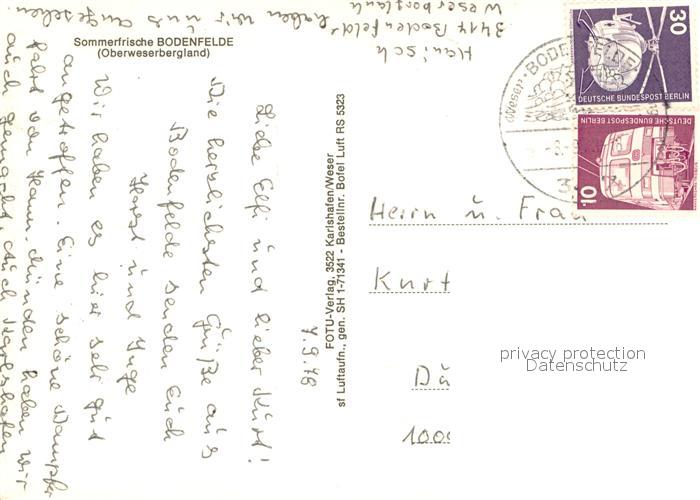 Sommerfrische BODENFELDE
(Oberweserbergland)
Hanisch
3417 Bodenfelde
Weserbergland
7.9.78
Liebe Elfi und lieber Kurt!
Die herzlichsten Grüße aus
Bodenfelde senden Euch
Horst und Inge
Wir haben es hier sehr gut
angetroffen. Eine schöne Dampfer
fahrt von Hann. Münden haben wir
auch gemacht, auch Karlshafen
haben wir uns angesehen
FOTU-Verlag, 3522 Karlshafen/Weser
sf Luftaufn., gen. SH 1-71341 - Bestellnr. Bofel Luft RS 5323
30
DEUTSCHE BUNDESPOST BERLIN
10
DEUTSCHE BUNDESPOST BERLIN
(Weser) · BODENFELDE
Herrn u. Frau
Kurt
Dä
1000
privacy protection
Datenschutz